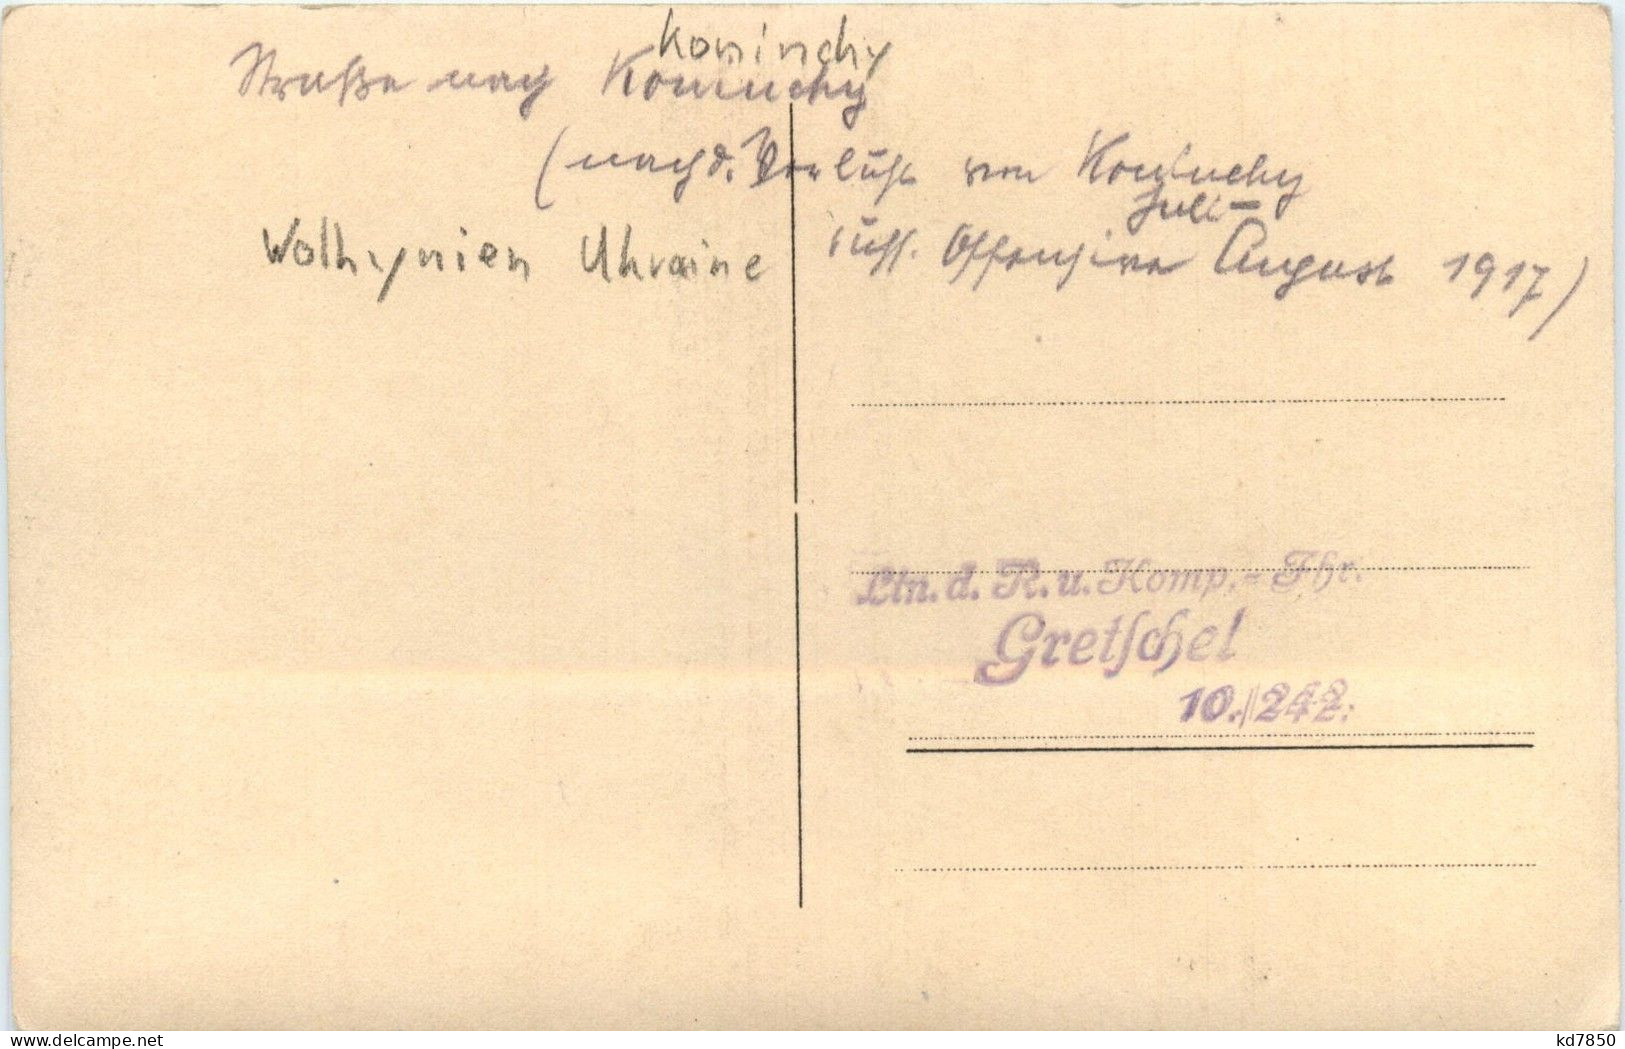 Koninchy
Straße nach Koniuchy
(nach d. Verlust von Koniuchy
Juli-
Wolhynien Ukraine russ. Offensive August 1917)
Ltn. d. R. u. Komp.-Fhr.
Gretschel
10./242.
www.delcampe.net
kd7850